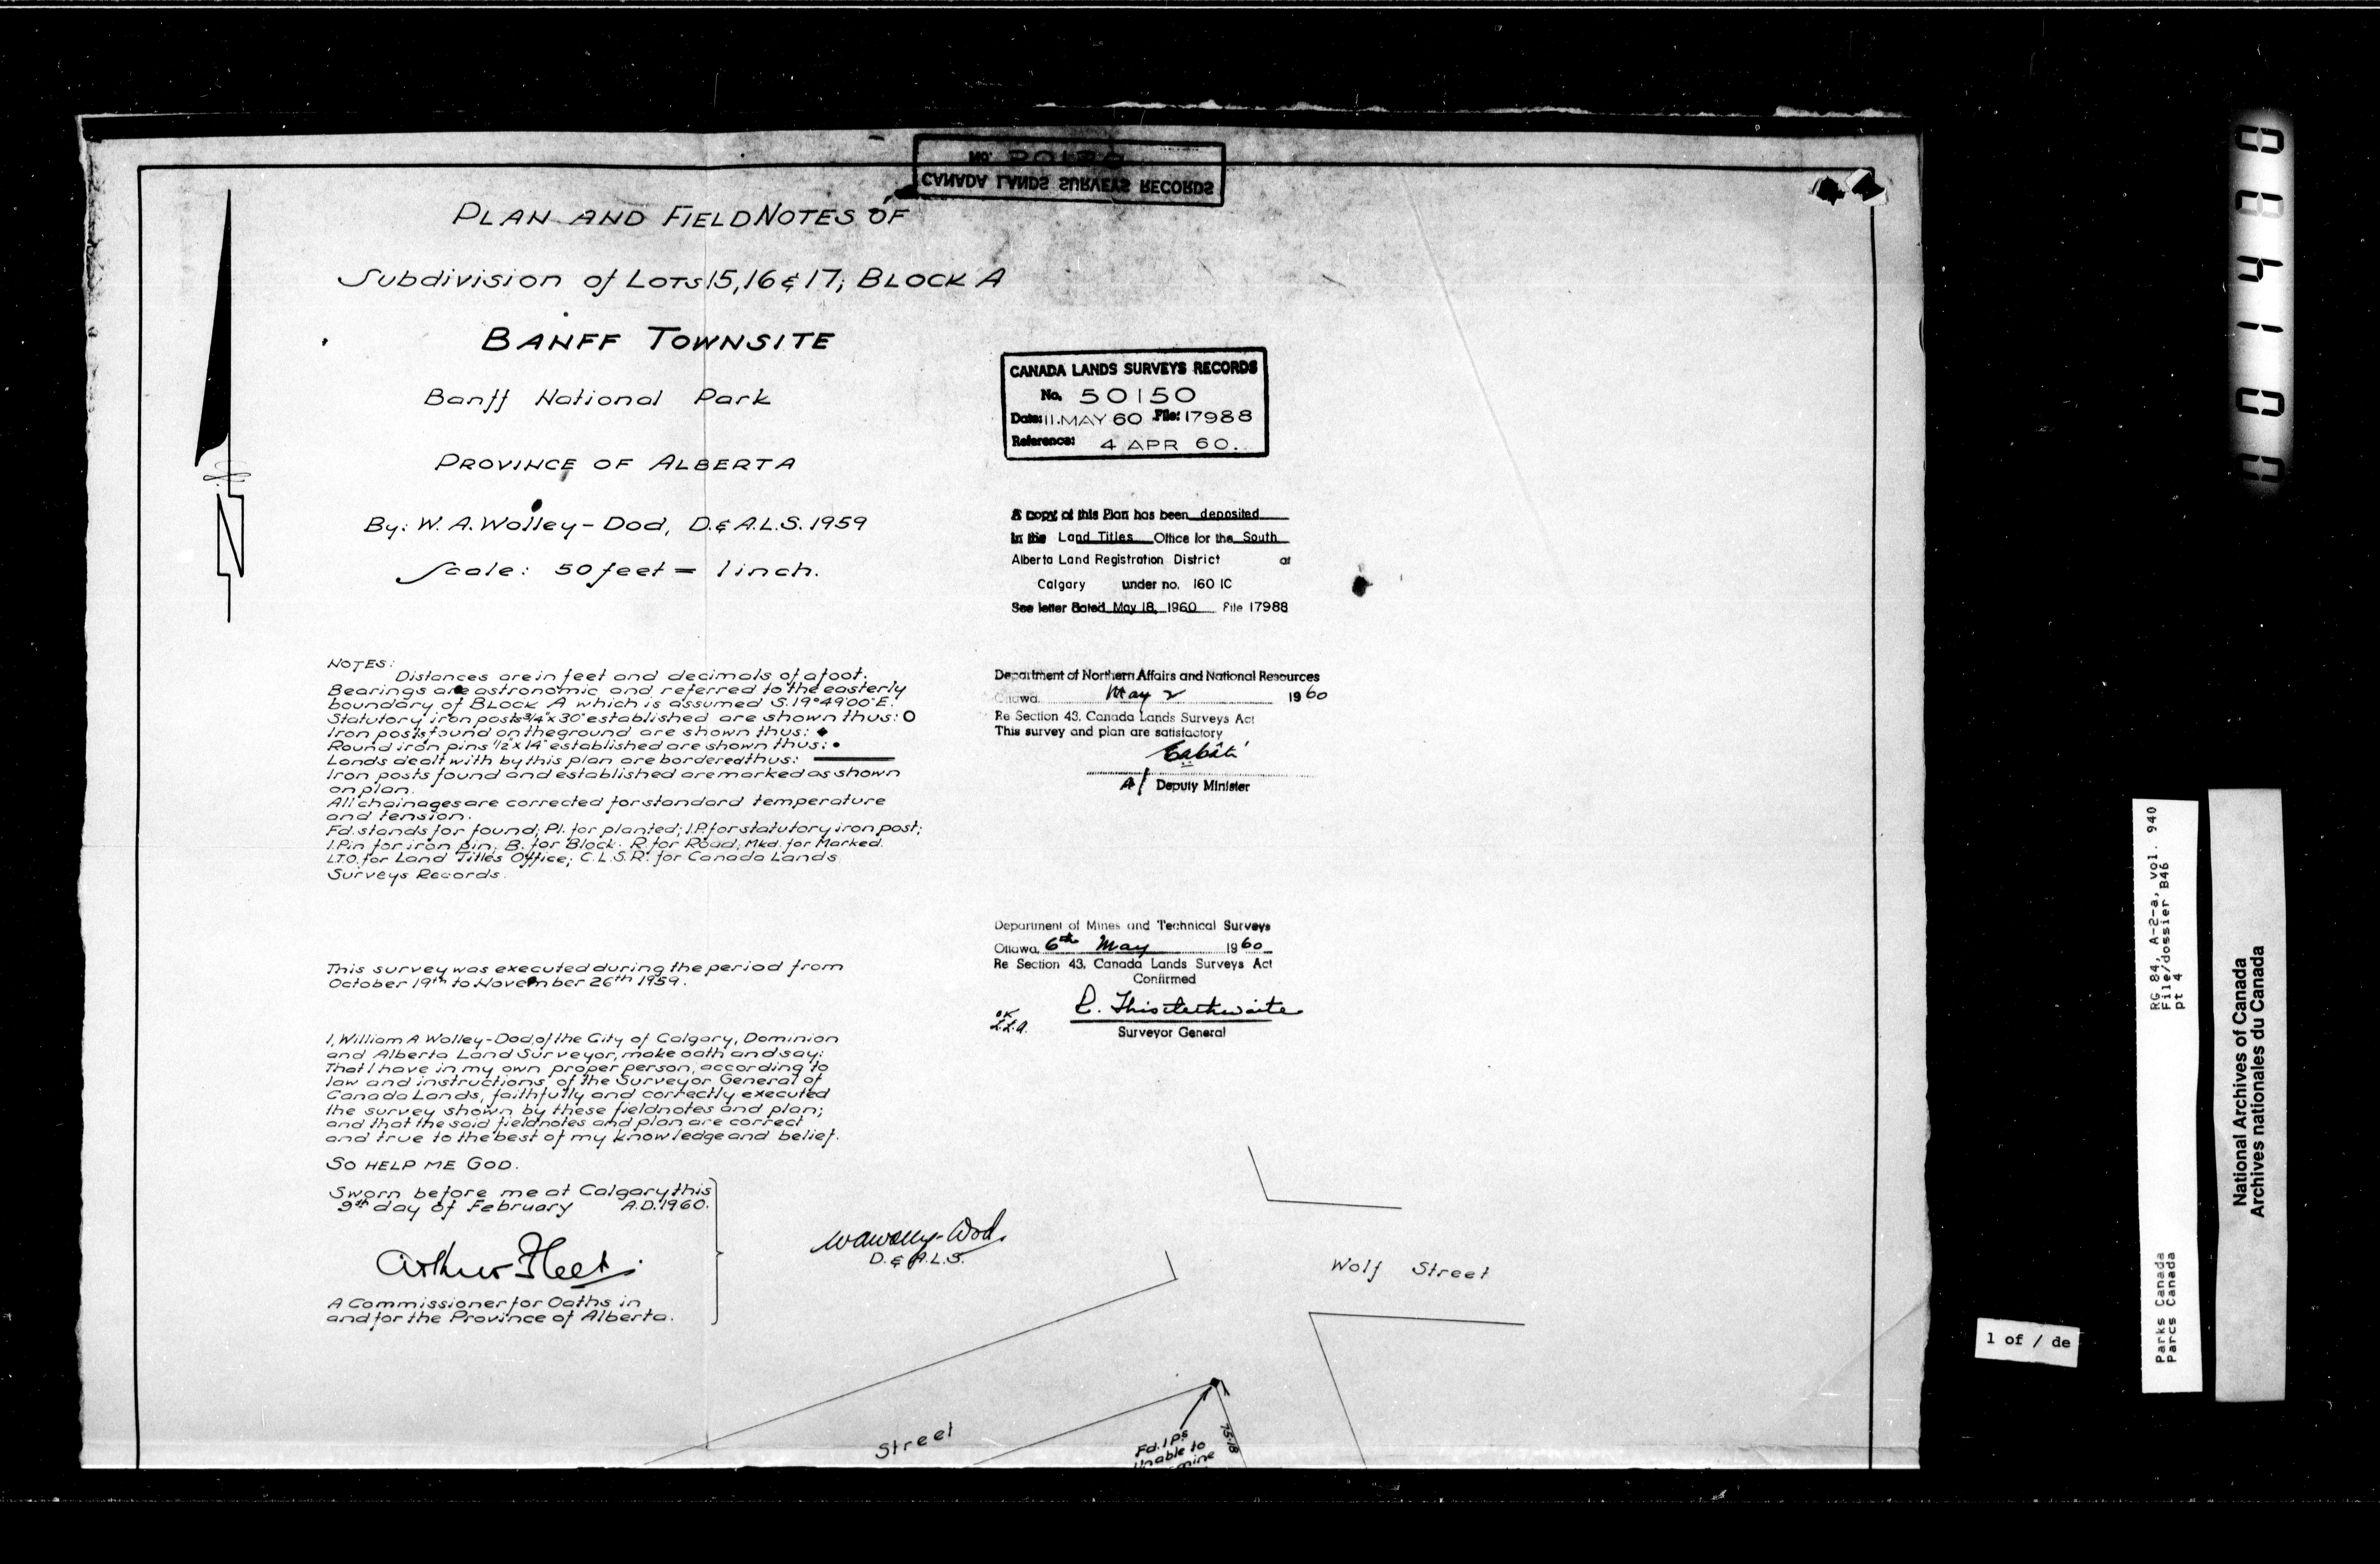 No. 50150
CANADA LANDS SURVEYS RECORDS
PLAN AND FIELDNOTES OF
Subdivision of LOTS 15, 16 & 17, BLOCK A
BANFF TOWNSITE
Banff National Park
PROVINCE OF ALBERTA
By: W. A. Wolley-Dod, D. & A.L.S. 1959
Scale: 50 feet = 1 inch.
NOTES:
Distances are in feet and decimals of a foot.
Bearings are astronomic and referred to the easterly
boundary of BLOCK A which is assumed S.19°49'00"E.
Statutory iron posts 3/4"x30" established are shown thus: O
Iron posts found on the ground are shown thus: ◆
Round iron pins 1/2"x14" established are shown thus: •
Lands dealt with by this plan are bordered thus:
Iron posts found and established are marked as shown
on plan.
All chainages are corrected for standard temperature
and tension.
Fd. stands for found; Pl. for planted; I.P. for statutory iron post;
I.Pin for iron pin; B. for Block. R. for Road; Mkd. for Marked.
L.T.O. for Land Titles Office; C.L.S.R. for Canada Lands
Surveys Records.
This survey was executed during the period from
October 19th to November 26th 1959.
I, William A Wolley-Dod, of the City of Calgary, Dominion
and Alberta Land Surveyor, make oath and say:
That I have in my own proper person, according to
law and instructions of the Surveyor General of
Canada Lands, faithfully and correctly executed
the survey shown by these fieldnotes and plan;
and that the said fieldnotes and plan are correct
and true to the best of my knowledge and belief.
SO HELP ME GOD.
Sworn before me at Calgary this
9th day of February A.D. 1960.
Arthur Fleet
A Commissioner for Oaths in
and for the Province of Alberta.
WAWolley-Dod.
D. & A.L.S.
CANADA LANDS SURVEYS RECORDS
No. 50150
Date: 11. MAY 60 File: 17988
Reference: 4 APR 60.
A copy of this Plan has been deposited
in the Land Titles Office for the South
Alberta Land Registration District at
Calgary under no. 160 IC
See letter dated May 18, 1960 File 17988
Department of Northern Affairs and National Resources
Ottawa, May 2 1960
Re Section 43, Canada Lands Surveys Act
This survey and plan are satisfactory
A/ Deputy Minister
Department of Mines and Technical Surveys
Ottawa, 6th May 1960
Re Section 43, Canada Lands Surveys Act
Confirmed
R. Thistlethwaite
Surveyor General
OK
Wolf Street
Street
Fd. I.P.s
Unable to
75.18
1 of / de
RG 84, A-2-a, vol. 940
File/dossier B46
pt 4
Parks Canada
Parcs Canada
National Archives of Canada
Archives nationales du Canada